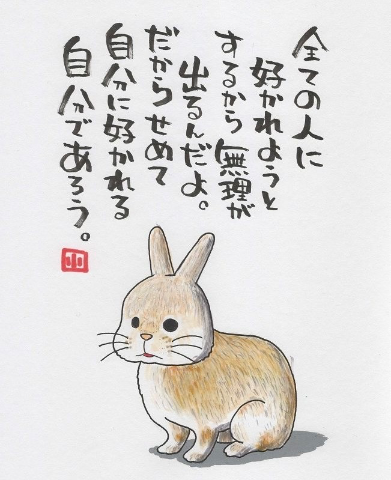 全ての人に
好かれようと
するから無理が
出るんだよ。
だからせめて
自分に好かれる
自分であろう。